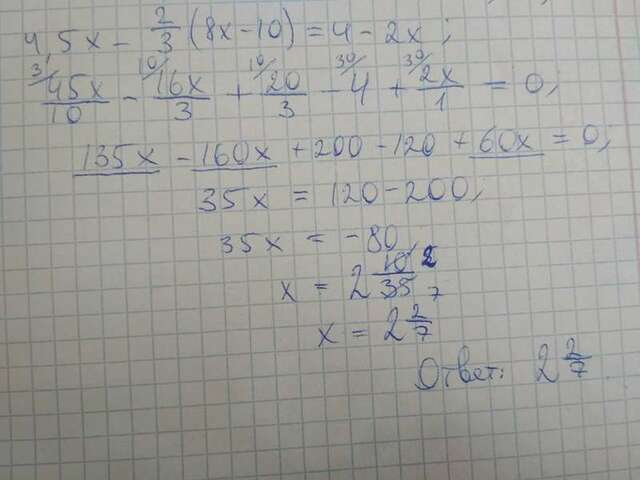 4,5x - 2/3 (8x - 10) = 4 - 2x;
3/ 45x/10 - 10/ 16x/3 + 10/ 20/3 - 30/ 4 + 30/ 2x/1 = 0;
135x - 160x + 200 - 120 + 60x = 0;
35x = 120 - 200;
35x = -80;
x = 2 10/35 2 7
x = 2 2/7
Ответ: 2 2/7